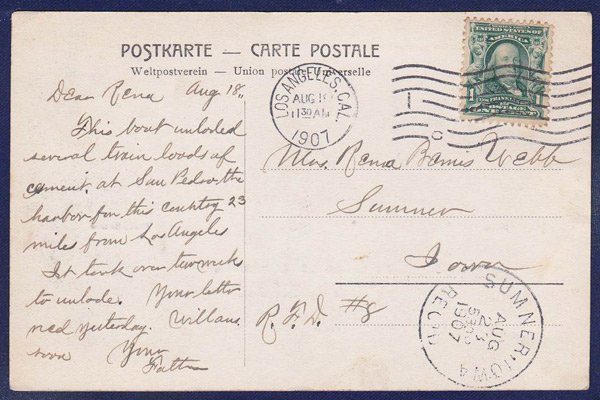 POSTKARTE — CARTE POSTALE
Weltpostverein — Union postale Universelle
Dear Rena Aug 18,
This boat unloded
several train loads of
cement. at San Pedro the
harbor for this country 23
miles from Los Angeles
It took over two week
to unlode. Your letter
recd yesterday. Will ans
soon Your
Father
LOS ANGELES, CAL.
AUG 18
11 30 AM
1907
1
UNITED STATES OF
AMERICA
FRANKLIN
POSTAGE
1 ONE CENT 1
Mrs. Rena Webb
Sumner
Iowa
R. F. D. #8
SUMNER, IOWA
AUG
23
1907
REC'D